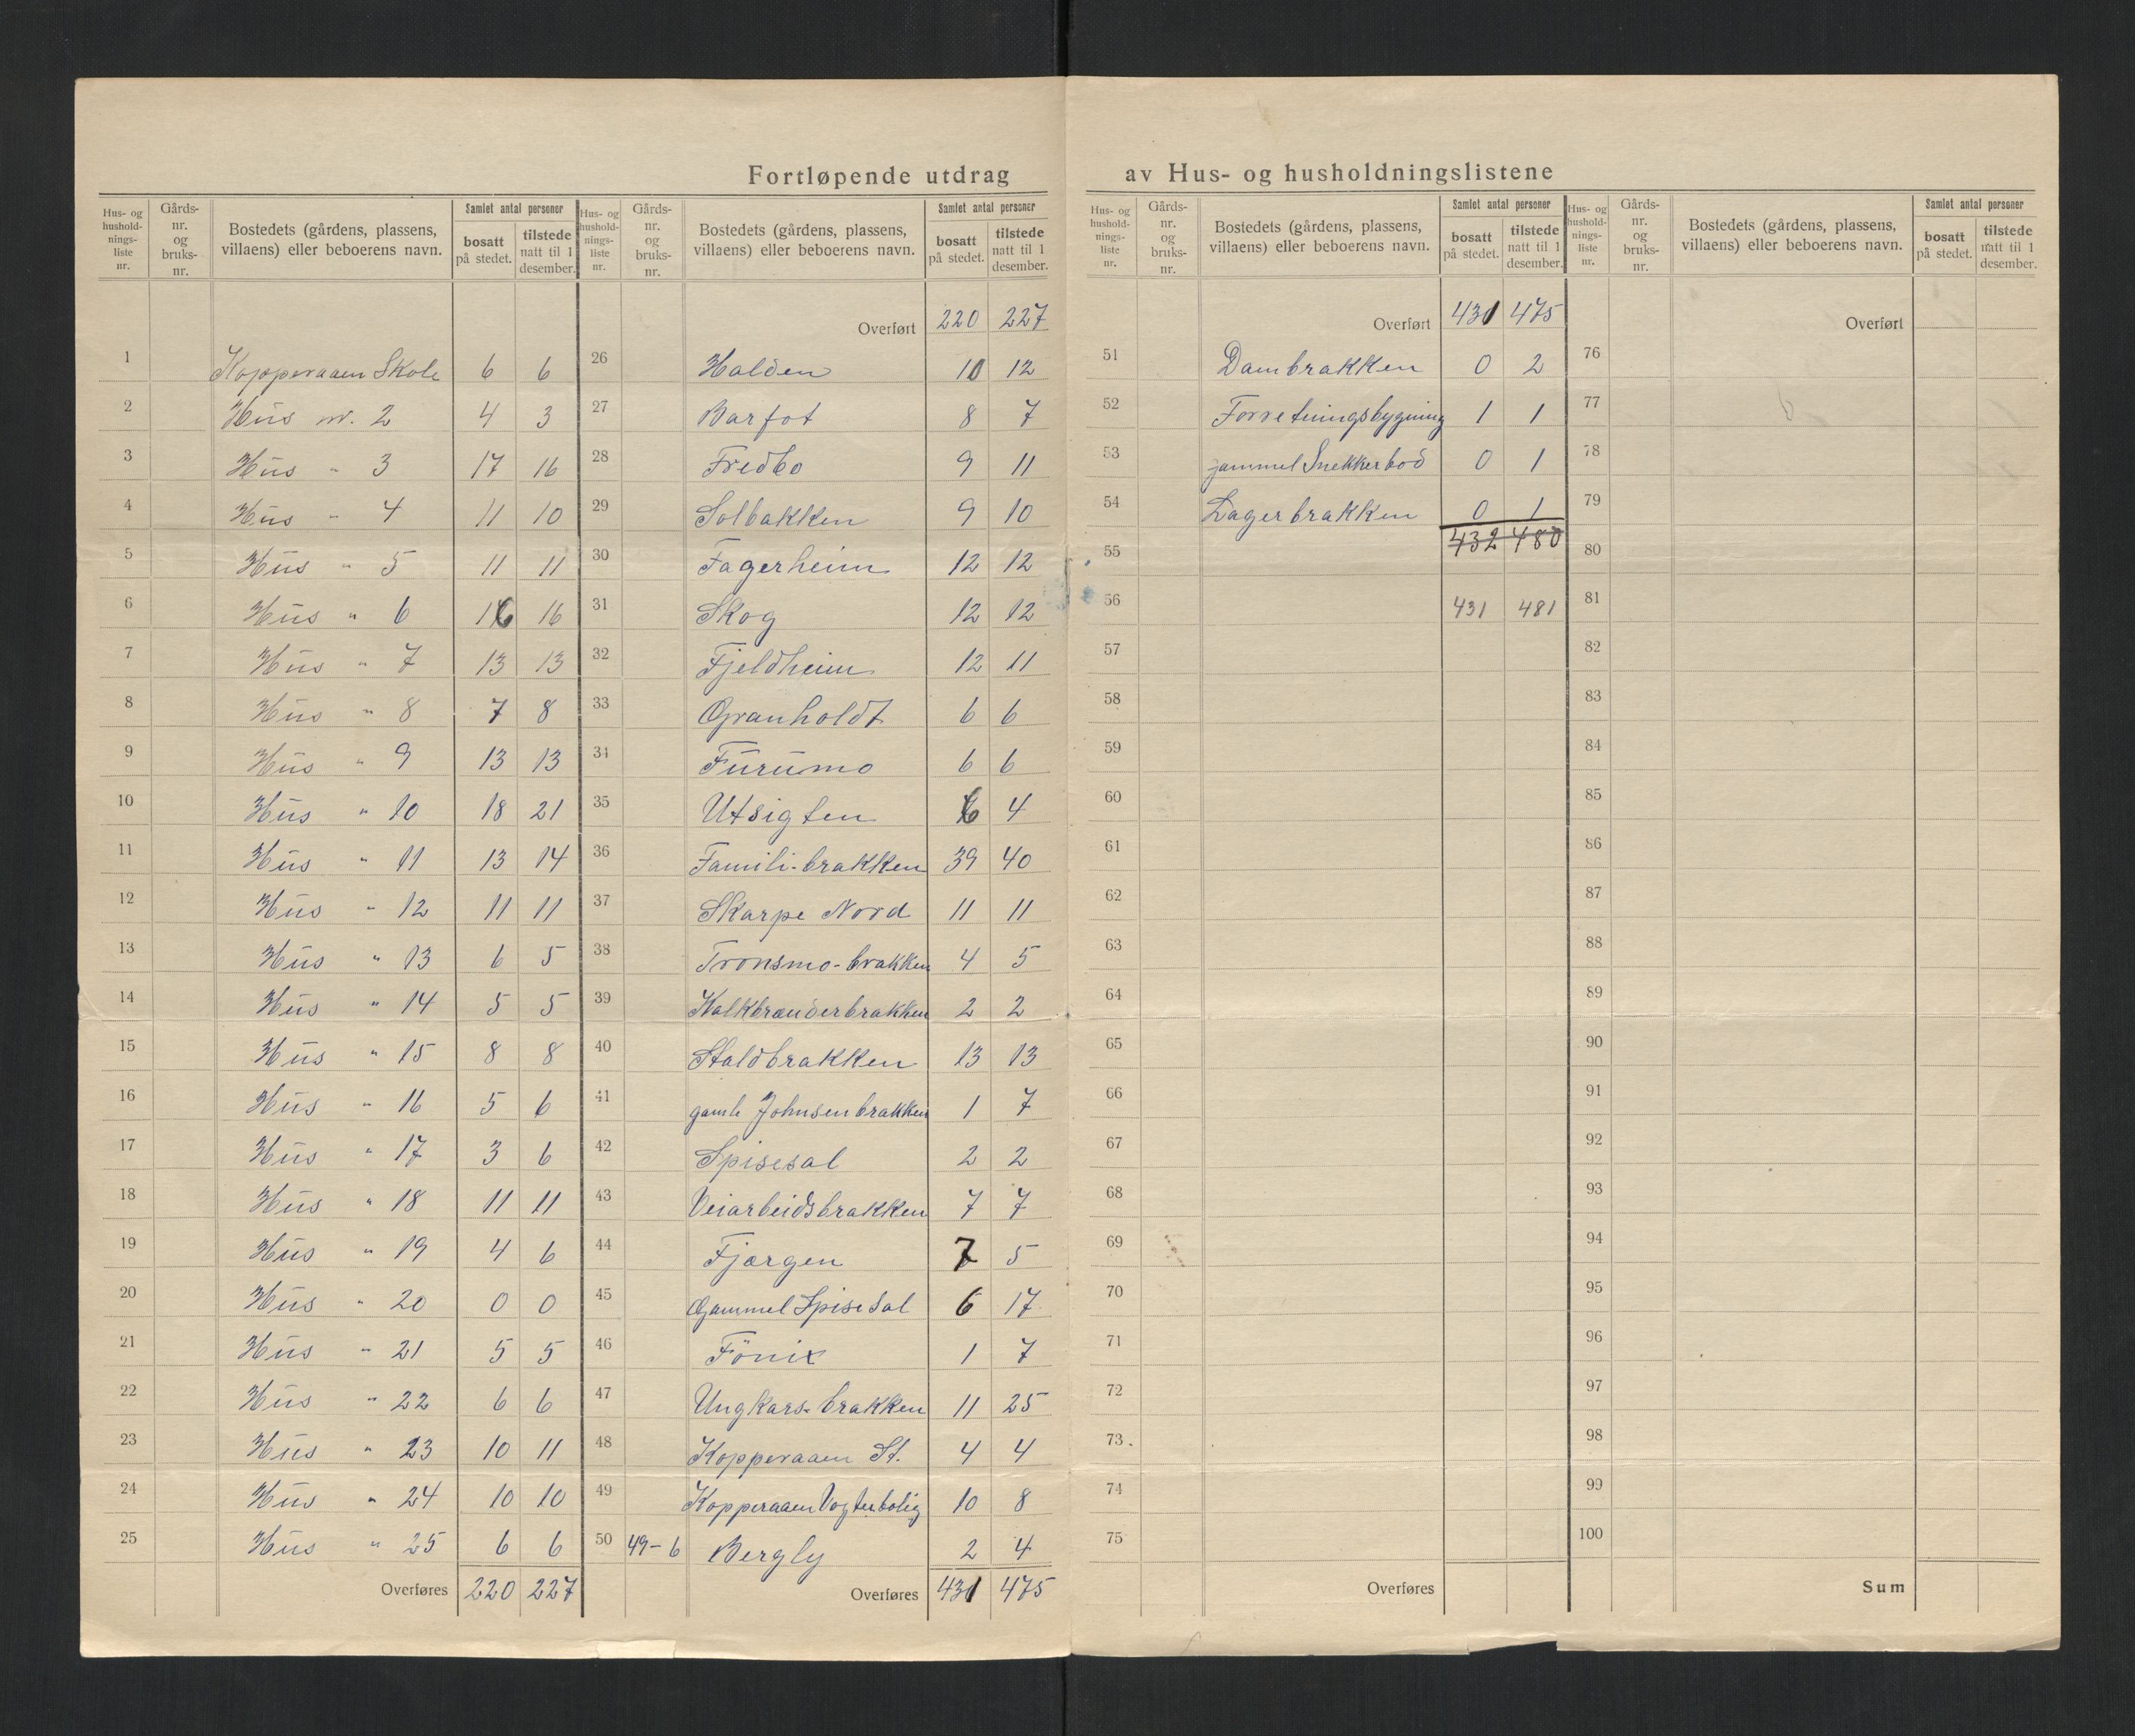 Fortløpende utdrag av Hus- og husholdningslistene
Hus- og hushold-nings-liste nr. | Gårds-nr. og bruks-nr. | Bostedets (gårdens, plassens, villaens) eller beboerens navn. | Samlet antal personer | bosatt på stedet. | tilstede natt til 1 desember.
1 Kopperaaen Skole 6 6
2 Hüs nr. 2 4 3
3 Hüs " 3 17 16
4 Hüs " 4 11 10
5 Hüs " 5 11 11
6 Hüs " 6 16 16
7 Hüs " 7 13 13
8 Hüs " 8 7 8
9 Hüs " 9 13 13
10 Hüs " 10 18 21
11 Hüs " 11 13 14
12 Hüs " 12 11 11
13 Hüs " 13 6 5
14 Hüs " 14 5 5
15 Hüs " 15 8 8
16 Hüs " 16 5 6
17 Hüs " 17 3 6
18 Hüs " 18 11 11
19 Hüs " 19 4 6
20 Hüs " 20 0 0
21 Hüs " 21 5 5
22 Hüs " 22 6 6
23 Hüs " 23 10 11
24 Hüs " 24 10 10
25 Hüs " 25 6 6
Overføres 220 227
Hus- og hushold-nings-liste nr. | Gårds-nr. og bruks-nr. | Bostedets (gårdens, plassens, villaens) eller beboerens navn. | Samlet antal personer | bosatt på stedet. | tilstede natt til 1 desember.
Overført 220 227
26 Halden 10 12
27 Barfot 8 7
28 Fredbo 9 11
29 Solbakken 9 10
30 Fagerheim 12 12
31 Skog 12 12
32 Fjeldheim 12 11
33 Granholdt 6 6
34 Fürümo 6 6
35 Utsigten 6 4
36 Famili-brakken 39 40
37 Skarpe Nord 11 11
38 Tronsmo-brakken 4 5
39 Kalkbrænderbrakken 2 2
40 Staldbrakken 13 13
41 gamle Johnsenbrakken 1 7
42 Spisesal 2 2
43 Veiarbeidsbrakken 7 7
44 Fjærgen 7 5
45 Gammel Spisesal 6 17
46 Fönix 1 7
47 Ungkars-brakken 11 25
48 Kopperaaen St. 4 4
49 Kopperaaen Vogterbolig 10 8
50 49-6 Bergly 2 4
Overføres 431 475
Hus- og hushold-nings-liste nr. | Gårds-nr. og bruks-nr. | Bostedets (gårdens, plassens, villaens) eller beboerens navn. | Samlet antal personer | bosatt på stedet. | tilstede natt til 1 desember.
Overført 431 475
51 Dambrakken 0 2
52 Forretningsbygning 1 1
53 gammel Snekkerbod 0 1
54 Lagerbrakken 0 1
55 432 480
56 431 481
57
58
59
60
61
62
63
64
65
66
67
68
69
70
71
72
73
74
75
Overføres
Hus- og hushold-nings-liste nr. | Gårds-nr. og bruks-nr. | Bostedets (gårdens, plassens, villaens) eller beboerens navn. | Samlet antal personer | bosatt på stedet. | tilstede natt til 1 desember.
Overført
76
77
78
79
80
81
82
83
84
85
86
87
88
89
90
91
92
93
94
95
96
97
98
99
100
Sum